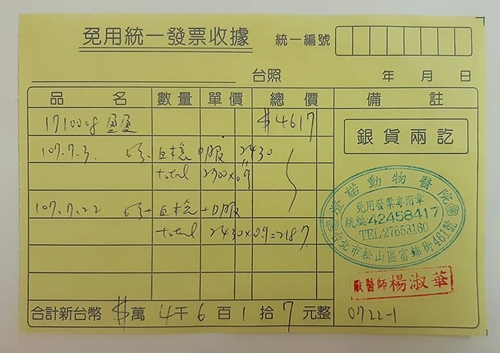 免用統一發票收據 統一編號
台照 年 月 日
品 名 數量 單價 總價 備註
1710008 $4617
銀貨兩訖
107.7.3. 2430
total 2700x0.9
107.7.22
total 2430x0.9=2187
澄諾動物醫院
免用發票專用章
統編42458417
TEL:27653160
台北市松山區富錦街461號
獸醫師楊淑華
合計新台幣 $萬4千6百1拾7元整
0722-1